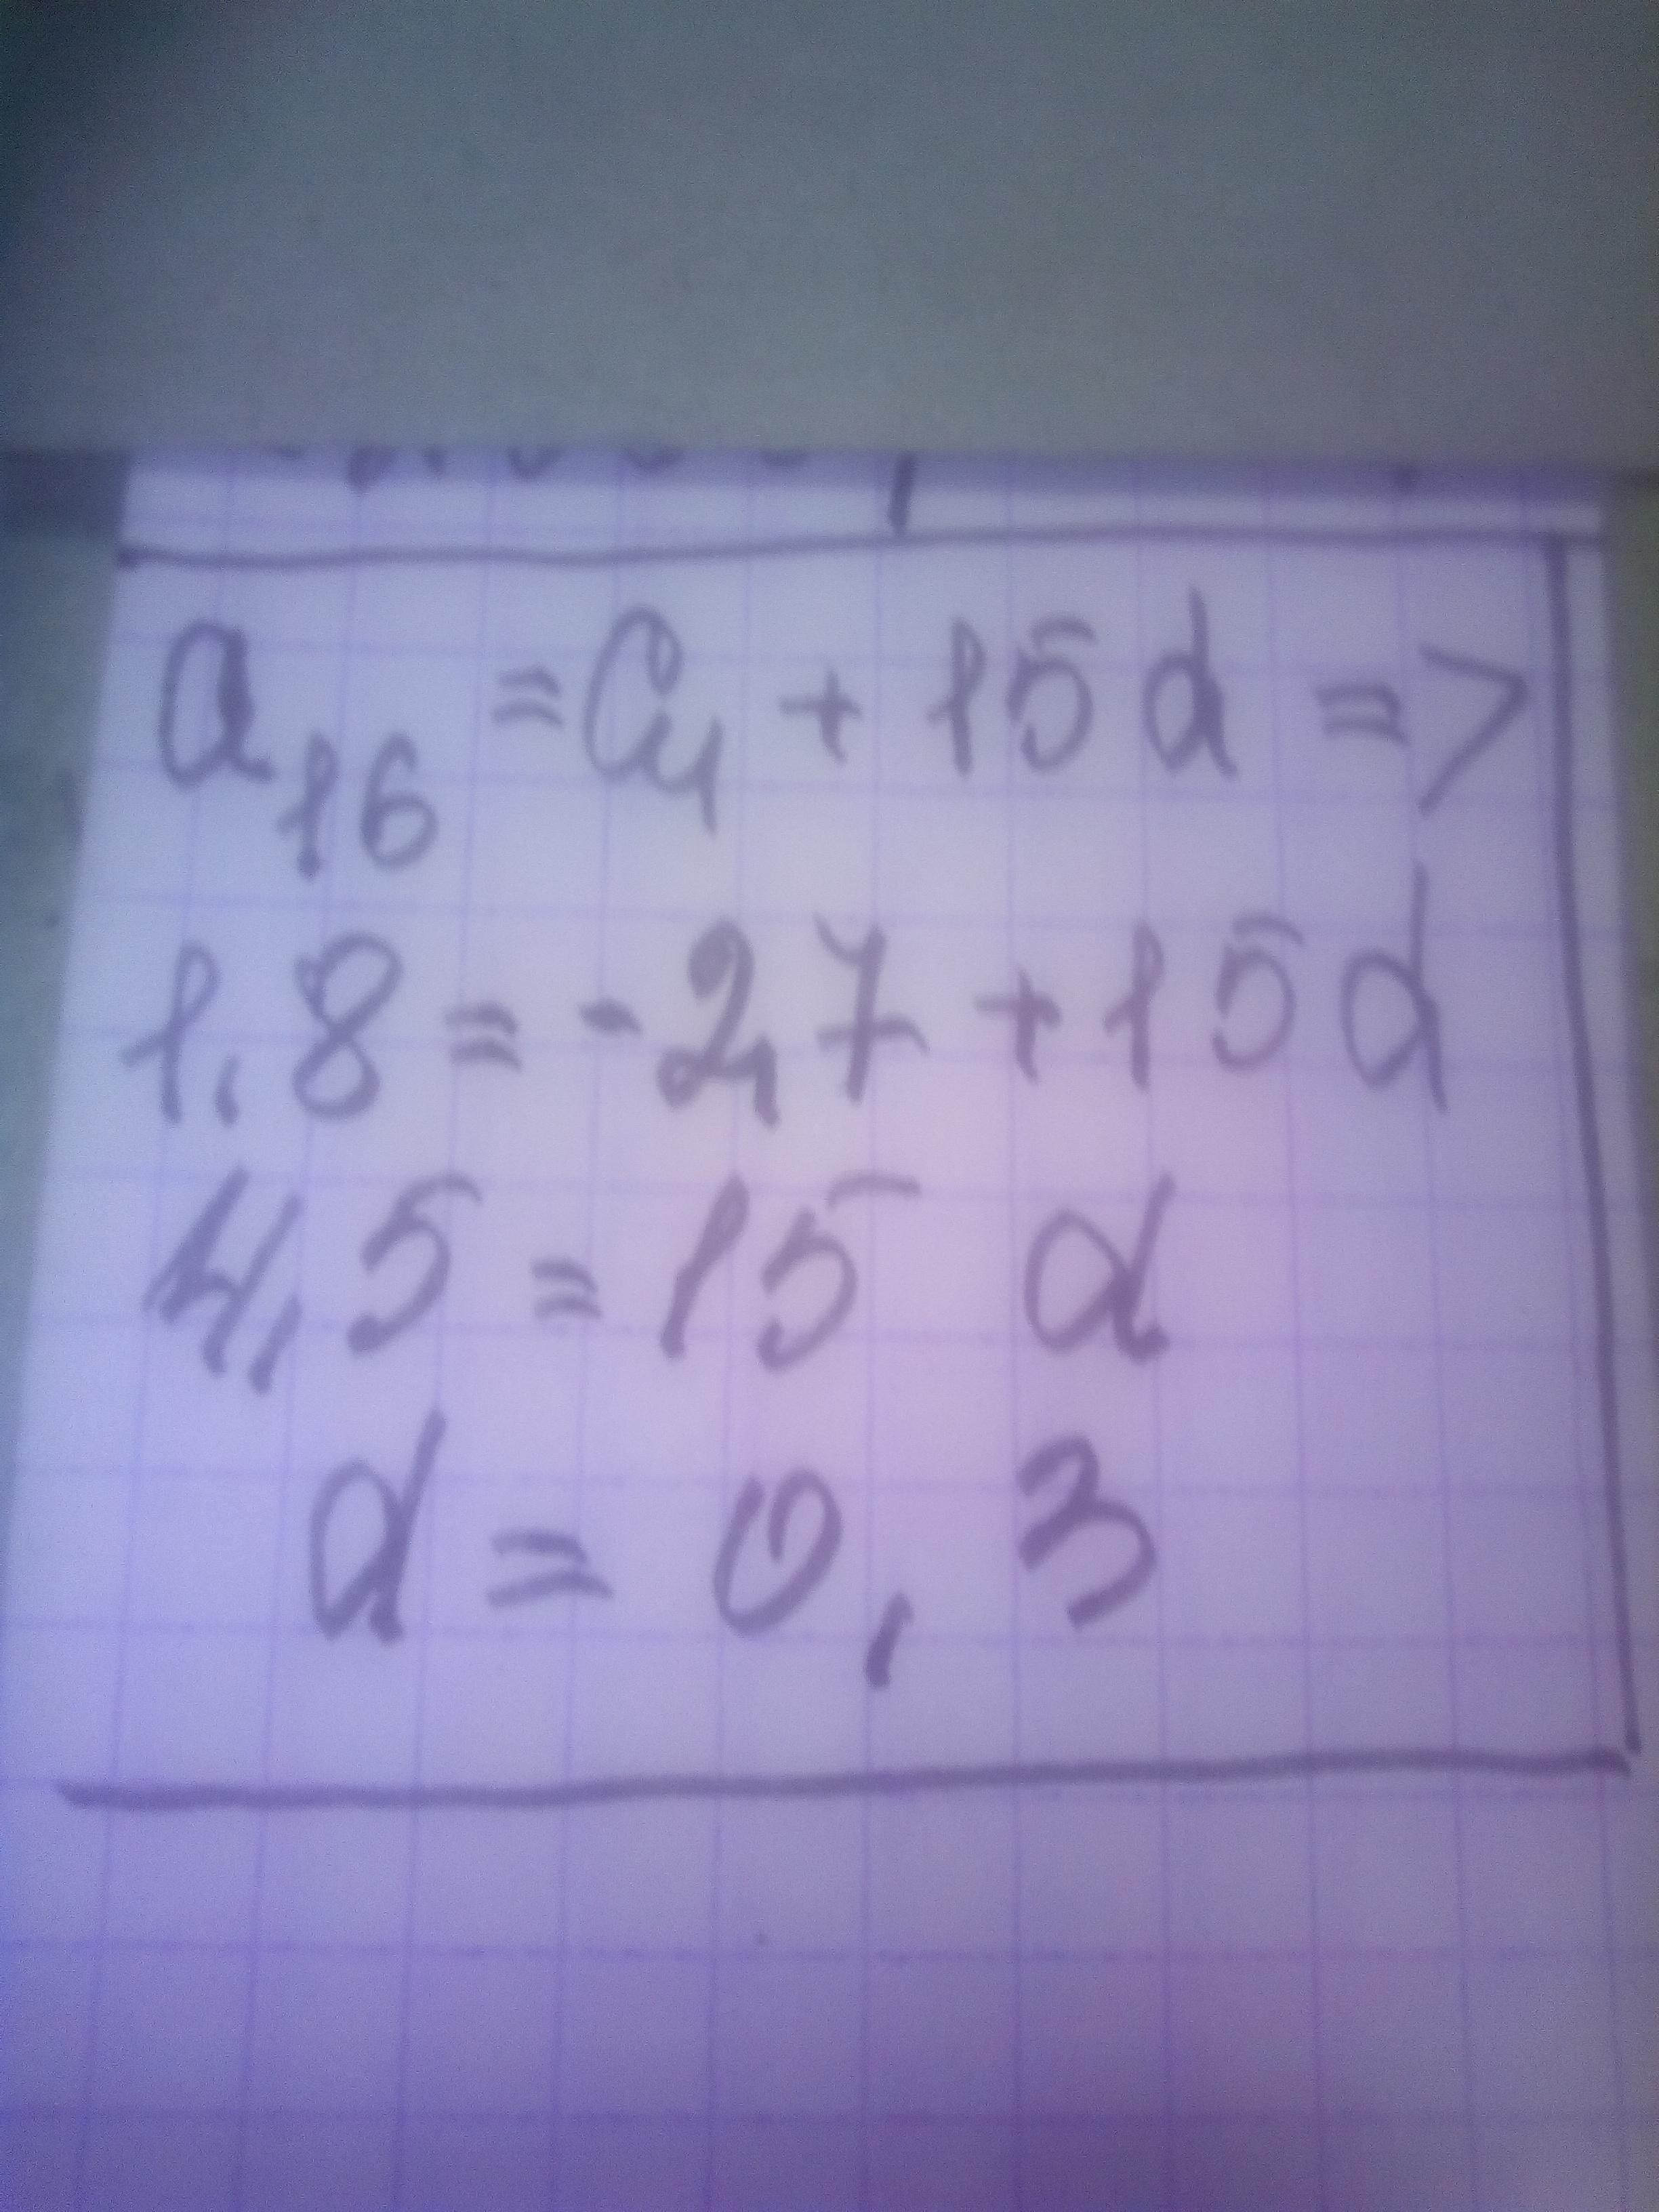 a₁₆ = a₁ + 15d =>
1,8 = -2,7 + 15d
4,5 = 15 d
d = 0,3